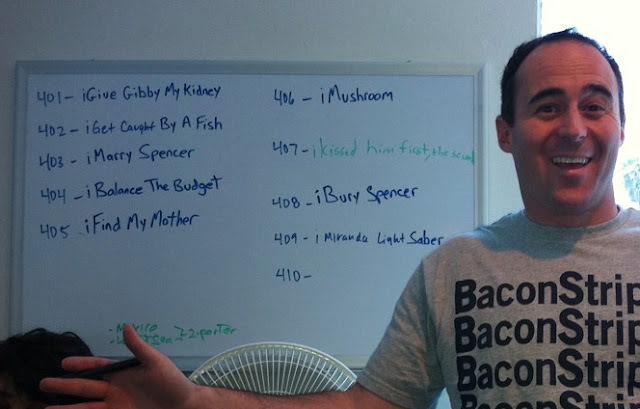 401 - iGive Gibby My Kidney
402 - iGet Caught By A Fish
403 - iMarry Spencer
404 - iBalance The Budget
405 - iFind My Mother
406 - iMushroom
407 - iKissed him first, the
408 - iBury Spencer
409 - iMiranda Light Saber
410 -
2-porter
BaconStrip
BaconStrip
BaconStrip
BaconStrip
BaconStrip